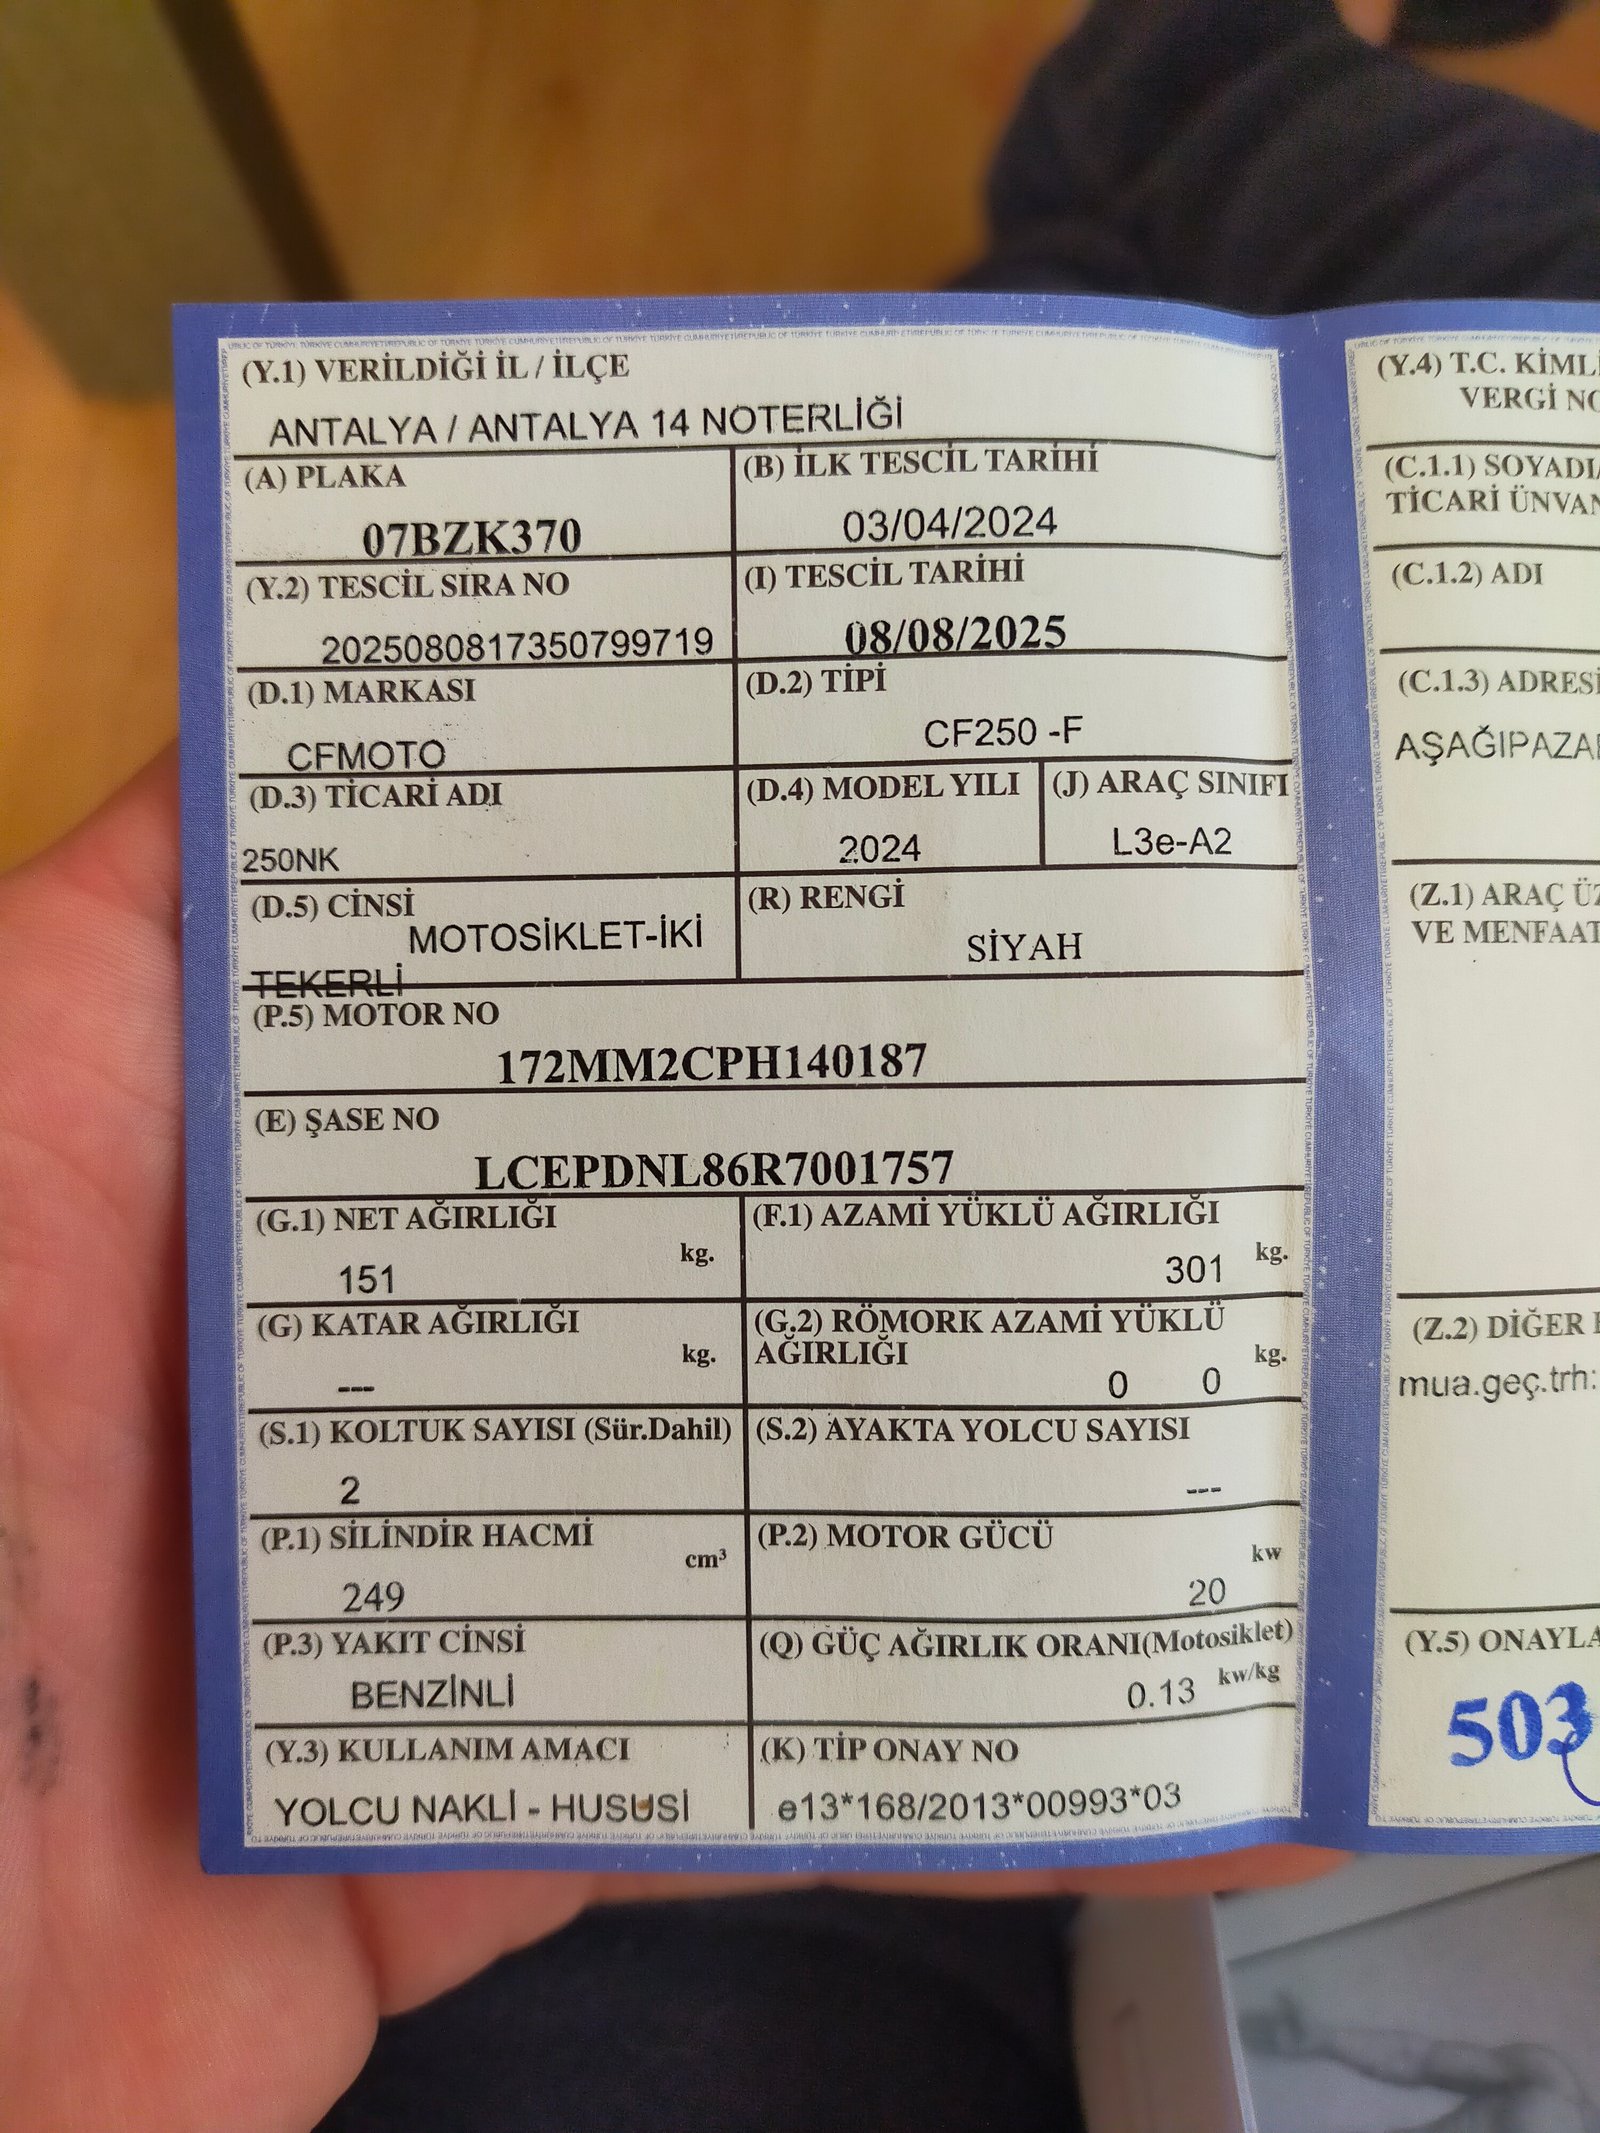 (Y.1) VERİLDİĞİ İL / İLÇE
ANTALYA / ANTALYA 14 NOTERLİĞİ
(A) PLAKA
07BZK370
(B) İLK TESCİL TARİHİ
03/04/2024
(Y.2) TESCİL SIRA NO
2025080817350799719
(I) TESCİL TARİHİ
08/08/2025
(D.1) MARKASI
CFMOTO
(D.2) TİPİ
CF250 -F
(D.3) TİCARİ ADI
250NK
(D.4) MODEL YILI
2024
(J) ARAÇ SINIFI
L3e-A2
(D.5) CİNSİ
MOTOSİKLET-İKİ
TEKERLİ
(R) RENGİ
SİYAH
(P.5) MOTOR NO
172MM2CPH140187
(E) ŞASE NO
LCEPDNL86R7001757
(G.1) NET AĞIRLIĞI
kg.
151
(F.1) AZAMİ YÜKLÜ AĞIRLIĞI
kg.
301
(G) KATAR AĞIRLIĞI
kg.
---
(G.2) RÖMORK AZAMİ YÜKLÜ
AĞIRLIĞI
kg.
0 0
(S.1) KOLTUK SAYISI (Sür.Dahil)
2
(S.2) AYAKTA YOLCU SAYISI
---
(P.1) SİLİNDİR HACMİ
cm³
249
(P.2) MOTOR GÜCÜ
kw
20
(P.3) YAKIT CİNSİ
BENZİNLİ
(Q) GÜÇ AĞIRLIK ORANI(Motosiklet)
0.13 kw/kg
(Y.3) KULLANIM AMACI
YOLCU NAKLİ - HUSUSİ
(K) TİP ONAY NO
e13*168/2013*00993*03
(Y.4) T.C. KİMLİ
VERGİ NO
(C.1.1) SOYADI/
TİCARİ ÜNVAN
(C.1.2) ADI
(C.1.3) ADRESİ
AŞAĞIPAZA
(Z.1) ARAÇ ÜZ
VE MENFAAT
(Z.2) DİĞER
mua.geç.trh:
(Y.5) ONAYLA
503